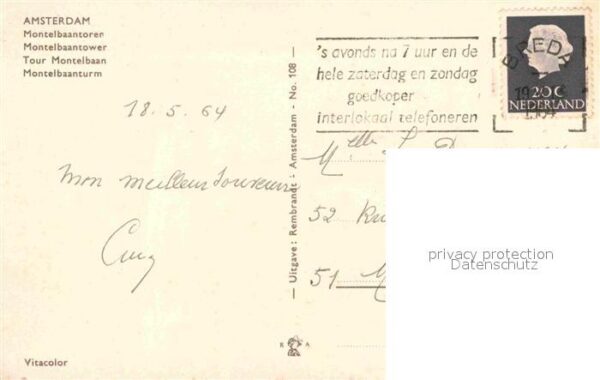 AMSTERDAM
Montelbaantoren
Montelbaantower
Tour Montelbaan
Montelbaanturm
18.5.64
Mon meilleur souvenir
Vitacolor
— Uitgave: Rembrandt - Amsterdam - No. 108 —
R A
's avonds na 7 uur en de
hele zaterdag en zondag
goedkoper
interlokaal telefoneren
BREDA
20 C
NEDERLAND
Melle
52
51
privacy protection
Datenschutz